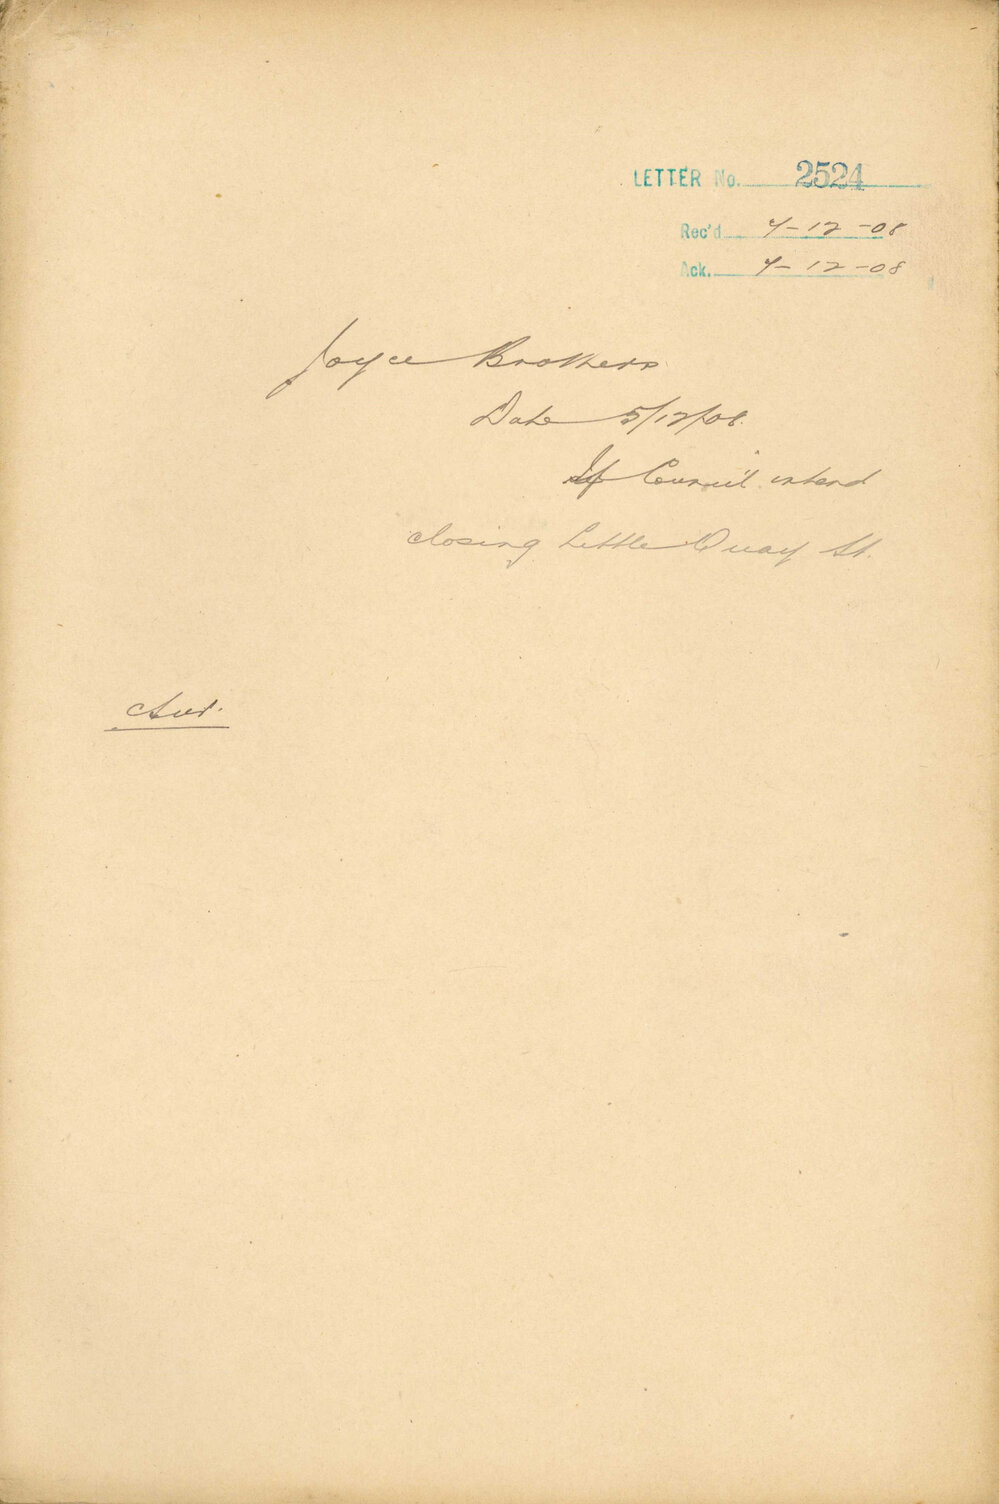 LETTER No. 2524
Rec'd 7-12-08
Ack. 7-12-08
Joyce Brothers
Date 5/12/08.
If Council intend
closing Little Quay St.